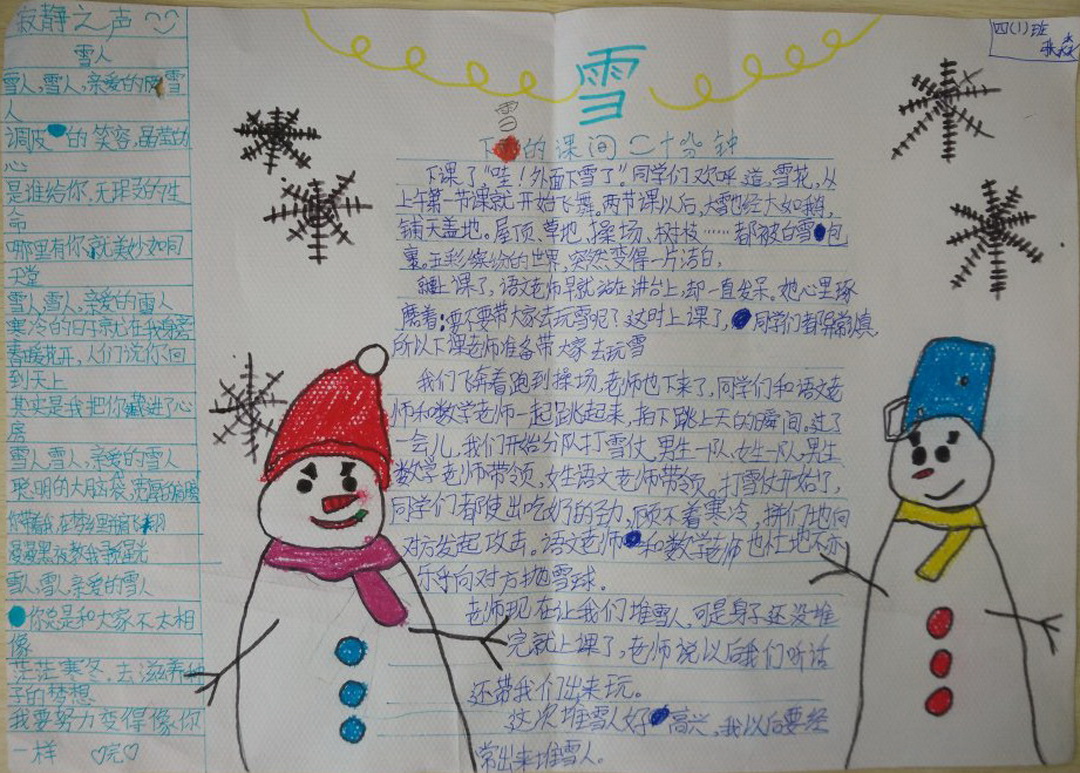 寂静之声
雪人
雪人,雪人,亲爱的雪
人
调皮的笑容,晶莹的
心
是谁给你,无瑕的生
命
哪里有你,就美妙如同
天堂
雪人,雪人,亲爱的雪人
寒冷的日子就在我身旁
春暖花开,人们说你回
到天上
其实是我把你藏进了心
房
雪人雪人,亲爱的雪人
聪明的大脑袋,宽厚的肩膀
你带着我在梦里翩飞翔
漫漫黑夜教我寻觅星光
雪人,雪人,亲爱的雪人
你总是和大家不太相
像
茫茫寒冬,去滋养种
子的梦想
我要努力变得像你
一样 ♡完♡
四(1)班
张焱
雪
下雪的课间二十分钟
下课了“哇!外面下雪了”。同学们欢呼道,雪花,从
上午第一节课就开始飞舞。两节课以后,大雪已经大如鹅,
铺天盖地。屋顶、草地、操场、树枝……都被白雪包
裹。五彩缤纷的世界,突然变得一片洁白,
上课了,语文老师早就站在讲台上,却一直发呆。她心里琢
磨着:要不要带大家去玩雪呢?这时上课了,同学们都异常慎
所以下课老师准备带大家去玩雪
我们飞奔着跑到操场,老师也下来了,同学们和语文老
师和数学老师一起跳起来,拍下跳上天的瞬间。过了
一会儿,我们开始分队打雪仗,男生一队、女生一队、男生
数学老师带领,女生语文老师带领。打雪仗开始了,
同学们都使出吃奶的劲,顾不着寒冷,拼们地向
对方发起攻击。语文老师和数学老师也忙地不亦
乐乎向对方抛雪球。
老师现在让我们堆雪人,可是身子还没堆
完就上课了,老师说以后我们听话
还带我们出来玩。
这次堆雪人好高兴,我以后要经
常出来堆雪人。